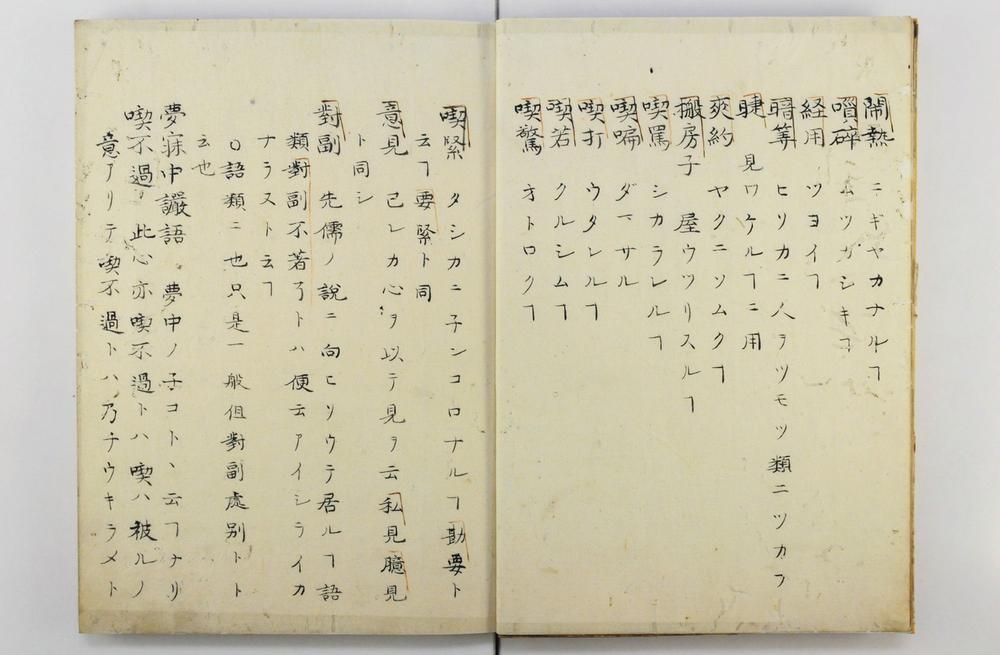 鬧熱 ニギヤカナルヿ
噆碎 ムツカシキヿ
経用 ツヨイヿ
暗筭 ヒソカニ人ヲツモツ類ニツカフ
睫 見ワケルヿニ用
爽約 ヤクニソムクヿ
搬房子 屋ウツリスルヿ
喫罵 シカラレルヿ
喫騙 ダマサル
喫打 ウタレルヿ
喫若 クルシムヿ
喫驚 オトロクヿ
喫緊 タシカニ子ンコロナルヿ勘要ト
云ヿ要緊ト同
意見 己レカ心ヲ以テ見ヲ云私見臆見
ト同シ
對副 先儒ノ説ニ向ヒソウテ居ルヿ語
類對副不著ヿトハ便云アイシライカ
ナラスト云ヿ
○語類ニ也只是一般但對副處別トト
云也
夢寐中讝語 夢中ノ子コトヽ云ヿナリ
喫不過 此心亦喫不過トハ喫ハ被ルノ
意アリテ喫不過トハ乃チウキラメト